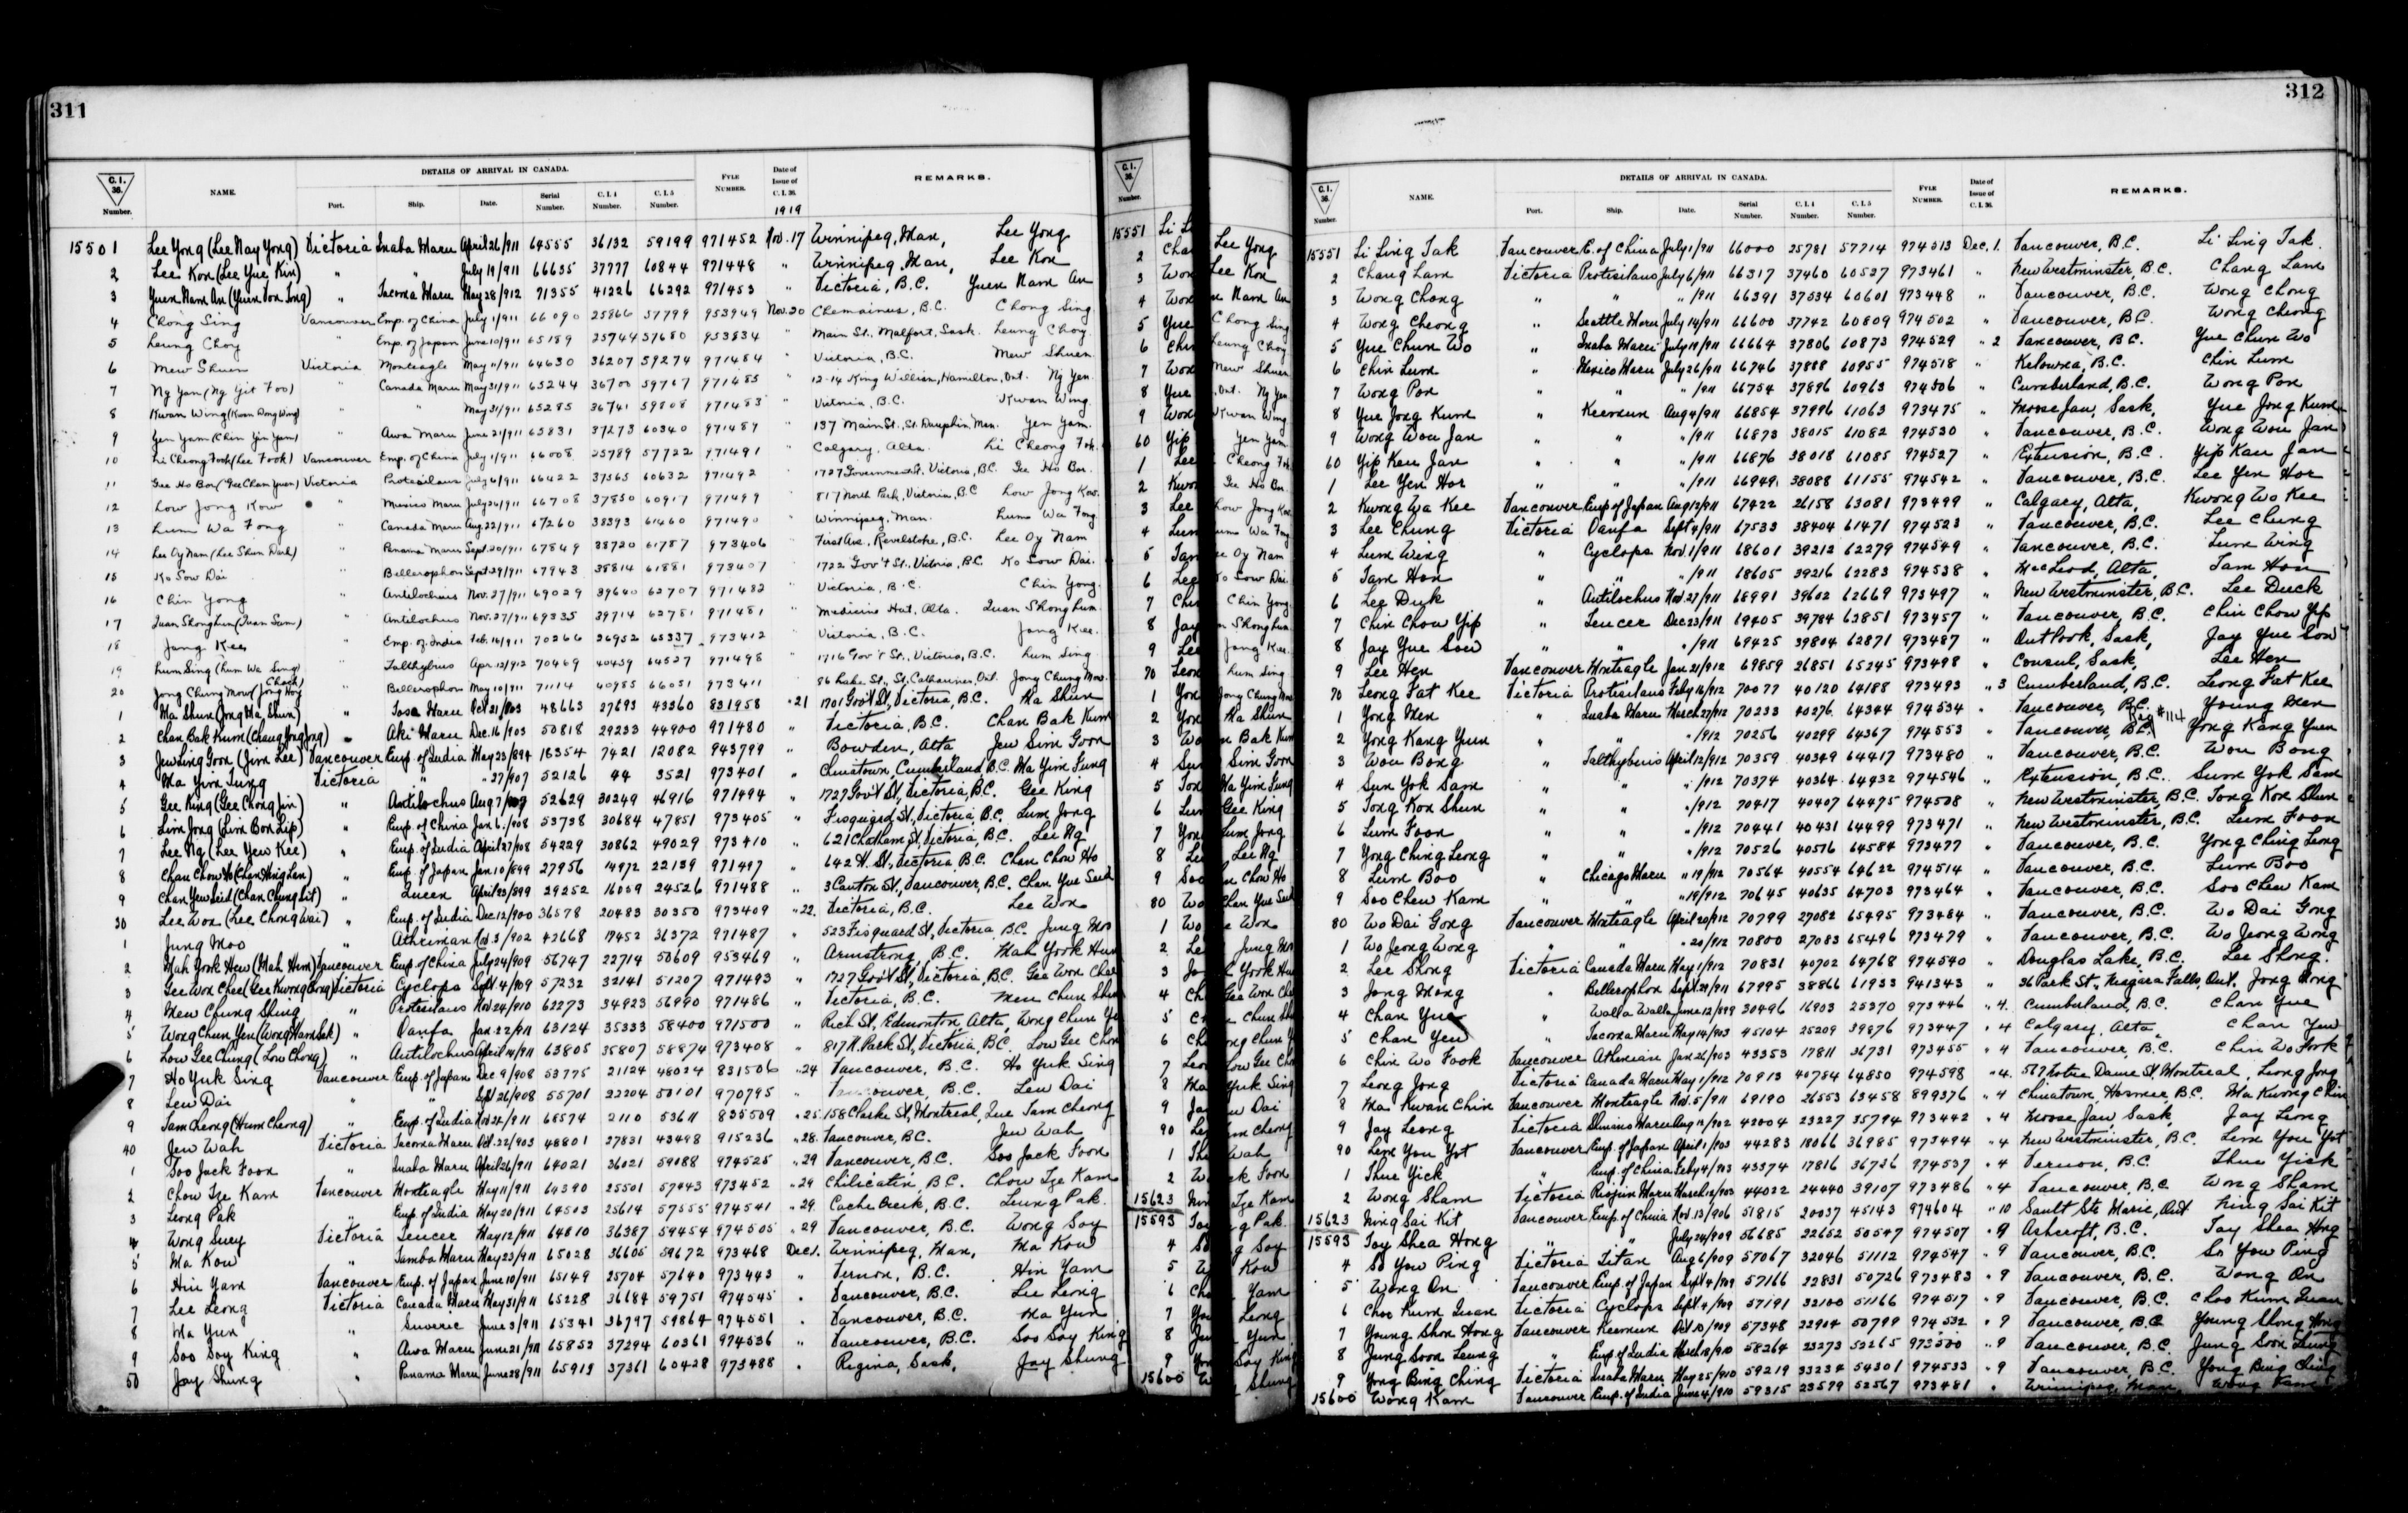 311
C. I. 36. Number.
NAME.
DETAILS OF ARRIVAL IN CANADA.
Port. Ship. Date. Serial Number. C. I. 4 Number. C. I. 5 Number.
FYLE NUMBER.
Date of Issue of C. I. 36.
1919
REMARKS.
15501 Lee Yong (Lee Nay Yong) Victoria Inaba Maru April 26/911 64555 36132 59199 971452 Nov. 17 Winnipeg, Man, Lee Yong
2 Lee Kon (Lee Yue Kin) " " July 19/911 66635 37777 60844 971448 " Winnipeg, Man, Lee Kon
3 Yuen Nam An (Yuen Von Tong) " Tacoma Maru May 28/912 71355 41226 66292 971453 " Victoria, B.C. Yuen Nam An
4 Chong Sing Vancouver Emp. of China July 1/911 66090 25866 57799 953949 Nov. 20 Chemainus, B.C. Chong Sing
5 Leung Choy Emp. of Japan June 10/911 65189 25744 57680 953834 " Main St., Malfort, Sask. Leung Choy
6 Mew Shuen Victoria Monteagle May 11/911 64630 36207 59274 971484 " Victoria, B.C. Mew Shuen
7 Ng Yan (Ng Git Foo) " Canada Maru May 31/911 65244 36700 59767 971485 " 12-14 King William, Hamilton, Ont. Ng Yen
8 Kwan Wing (Kwan Dong Wing) " " May 31/911 65285 36741 59808 971483 " Victoria, B.C. Kwan Wing
9 Yen Yam (Chin Yin Yam) " Awa Maru June 21/911 65831 37273 60340 971489 " 137 Main St., St. Dauphin, Man. Yen Yam
10 Li Cheong Fook (Lee Fook) Vancouver Emp. of China July 1/911 66008 25789 57722 971491 " Calgary, Alta. Li Cheong Fok
11 Gee Ho Bon (Gee Chan Yuen) Victoria Protesilaus July 6/911 66422 37565 60632 971492 " 1727 Government St., Victoria, B.C. Gee Ho Bon
12 Low Jong Kow " Mexico Maru July 26/911 66708 37850 60917 971499 " 817 North Park, Victoria, B.C. Low Jong Kow
13 Lum Wa Fong " Canada Maru Aug. 22/911 67260 38393 61460 971490 " Winnipeg, Man. Lum Wa Fong
14 Lee Oy Nam (Lee Shun Dark) " Panama Maru Sept. 20/911 67849 38720 61787 973406 " First Ave., Revelstoke, B.C. Lee Oy Nam
15 Ko Sow Dai " Bellerophon Sept. 29/911 67943 38814 61881 973407 " 1722 Gov't St., Victoria, B.C. Ko Sow Dai
16 Chin Yong " Antilochus Nov. 27/911 69029 39640 62707 971482 " Victoria, B.C. Chin Yong
17 Quan Shong Lum (Quan Sam) " Antilochus Nov. 27/911 69335 39714 62781 971481 " Medicine Hat, Alta. Quan Shong Lum
18 Jang Kee " Emp. of India Feb. 16/911 70266 26952 65337 973412 " Victoria, B.C. Jang Kee
19 Lum Sing (Lum Wa Sing) " Talthybius Apr. 12/912 70469 40459 64527 971498 " 1716 Gov't St., Victoria, B.C. Lum Sing
20 Jong Chung Mow (Jong Hoy Chack) " Bellerophon May 10/911 71114 40985 66051 973411 " 86 Lake St., St. Catharines, Ont. Jong Chung Mow
1 Ma Shun (Jong Ma Shun) " Tosa Maru Oct 21/903 48663 27693 43360 831958 " 21 1701 Gov't St, Victoria, B.C. Ma Shun
2 Chan Bak Kum (Chang Jong Jong) " Aki Maru Dec. 16/903 50818 29233 44900 971480 " Victoria, B.C. Chan Bak Kum
3 Jew Sing Goon (Jim Lee) Vancouver Emp. of India May 23/894 18354 7421 12082 943799 " Bowden, Alta Jew Sim Goon
4 Ma Yim Sung Victoria " " 27/907 52126 94 3521 973401 " Chinatown, Cumberland, B.C. Ma Yim Fung
5 Gee King (Gee Chong Jin) " Antilochus Aug 7/909 52629 30249 46916 971494 " 1727 Gov't St, Victoria, B.C. Gee King
6 Lim Jong (Lim Bon Lip) " Emp. of China Jan 6./908 53738 30684 47851 973405 " Fisguard St, Victoria, B.C. Lum Jong
7 Lee Ng (Lee Yew Kee) " Emp. of India April 27/908 54229 30862 49029 973410 " 621 Chatham St, Victoria, B.C. Lee Ng
8 Chan Chow Ho (Chan Hing Lan) " Emp. of Japan Jan 10/899 27956 14972 22139 971497 " 642 H. St, Victoria B.C. Chan Chow Ho
9 Chan Yew Seid (Chan Chung Lit) " Queen April 23/899 29252 16009 24526 971488 " 3 Canton St, Vancouver, B.C. Chan Yue Seid
30 Lee Won (Lee Chong Wai) " Emp. of India Dec 12/900 36578 20483 30350 973409 " 22. Victoria, B.C. Lee Won
1 Jung Moo " Athenian Nov. 3/902 42668 17452 36372 971487 " 523 Fisguard St, Victoria, B.C. Jung Moo
2 Mah York Hew (Mah Hem) Vancouver Emp. of China July 24/909 56747 22714 50609 953469 " Armstrong, B.C. Mah York Hew
3 Gee Won Chee (Gee Kwong Gong) Victoria Cyclops Sept. 4/909 57232 32141 51207 971493 " 1727 Gov't St, Victoria, B.C. Gee Won Chee
4 Mew Chung Shing " Protesilaus Nov 24/910 62273 34923 56990 971486 " Victoria, B.C. Mew Chun Shin
5 Wong Chun Yen (Wong Ham Sak) " Oanfa Jan. 22/911 63124 35333 58400 971500 " Rich St, Edmonton, Alta, Wong Chun Ye
6 Low Gee Chung (Low Chong) " Antilochus April 14/911 63805 35807 58874 973408 " 817 N. Park St, Victoria, B.C. Low Gee Chon
7 Ho Yuk Sing Vancouver Emp. of Japan Dec 9/908 53775 21124 48024 831506 " 24 Vancouver, B.C. Ho Yuk Sing
8 Lew Dai " " Sept 26/908 55701 22204 50101 970795 " Vancouver, B.C. Lew Dai
9 Tam Cheong (Hum Cheong) " Emp. of India Nov 24/911 68574 2110 53611 835509 " 25 158 Clarke St, Montreal, Que Tam Cheong
40 Jew Wah Victoria Tacoma Maru Oct. 22/903 48801 27831 43498 915236 " 28. Vancouver, B.C. Jew Wah
1 Soo Jack Foon " Inaba Maru April 26/911 64021 36021 59088 974525 " 29 Vancouver, B.C. Soo Jack Foon
2 Chow Tze Kam Vancouver Monteagle May 11/911 64390 25501 57443 973452 " 29 Chilicatin, B.C. Chow Tze Kam
3 Leong Pak " Emp. of India May 20/911 64503 25614 57555 974541 " 29. Cache Creek, B.C. Leung Pak
4 Wong Suey Victoria Teucer May 12/911 64810 36387 59454 974505 " 29 Vancouver, B.C. Wong Soy
5 Ma Kow " Tamba Maru May 23/911 65028 36605 59672 973468 Dec 1. Winnipeg, Man, Ma Kow
6 Hin Yam Vancouver Emp. of Japan June 10/911 65149 25704 57640 973443 " Vernon, B.C. Hin Yam
7 Lee Leong Victoria Canada Maru May 31/911 65228 36684 59751 974545 " Vancouver, B.C. Lee Leong
8 Ma Yun " Suveric June 3/911 65341 36797 59864 974551 " Vancouver, B.C. Ma Yun
9 Soo Soy King " Awa Maru June 21/911 65852 37294 60361 974536 " Vancouver, B.C. Soo Soy King
50 Jay Shung " Panama Maru June 28/911 65919 37361 60428 973488 " Regina, Sask, Jay Shung
312
C. I. 36. Number.
NAME.
DETAILS OF ARRIVAL IN CANADA.
Port. Ship. Date. Serial Number. C. I. 4 Number. C. I. 5 Number.
FYLE NUMBER.
Date of Issue of C. I. 36.
REMARKS.
15551 Li Ling Tak Vancouver E. of China July 1/911 66000 25781 57714 974513 Dec. 1. Vancouver, B.C. Li Ling Tak
2 Chang Lam Victoria Protesilaus July 6/911 66317 37460 60527 973461 " New Westminster, B.C. Chang Lam
3 Wong Chong " " " /911 66391 37534 60601 973448 " Vancouver, B.C. Wong Chong
4 Wong Cheong " Seattle Maru July 14/911 66600 37742 60809 974502 " Vancouver, B.C. Wong Cheong
5 Yue Chun Wo " Inaba Maru July 19/911 66664 37806 60873 974529 " 2 Vancouver, B.C. Yue Chun Wo
6 Chin Lum " Mexico Maru July 26/911 66746 37888 60955 974518 " Kelowna, B.C. Chin Lum
7 Wong Pon " " " /911 66754 37896 60963 974506 " Cumberland, B.C. Wong Pon
8 Yue Jong Kum " Keemun Aug 4/911 66854 37996 61063 973475 " Moose Jaw, Sask, Yue Jong Kum
9 Wong Wou Jan " " " /911 66873 38015 61082 974530 " Vancouver, B.C. Wong Wou Jan
60 Yip Kau Jan " " " /911 66876 38018 61085 974527 " Extension, B.C. Yip Kau Jan
1 Lee Yen Hor " " " /911 66949 38088 61155 974542 " Vancouver, B.C. Lee Yen Hor
2 Kwong Wa Kee Vancouver Emp of Japan Aug 12/911 67422 26158 63081 973499 " Calgary, Alta, Kwong Wo Kee
3 Lee Chung Victoria Oanfa Sept 9/911 67533 38404 61471 974523 " Vancouver, B.C. Lee Chung
4 Lum Wing " Cyclops Nov. 1/911 68601 39212 62279 974549 " Vancouver, B.C. Lum Wing
5 Tam Hon " " " /911 68605 39216 62283 974538 " MacLeod, Alta, Tam Hon
6 Lee Duck " Antilochus Nov. 27/911 68991 39602 62669 973497 " New Westminster, B.C. Lee Duck
7 Chin Chow Yip " Teucer Dec 23/911 69405 39784 62851 973457 " Vancouver, B.C. Chin Chow Yip
8 Jay Yue Sow " " " /911 69425 39804 62871 973487 " Outlook, Sask, Jay Yue Sow
9 Lee Hen Vancouver Monteagle Jan. 21/912 69859 26851 65245 973498 " Consul, Sask, Lee Hen
70 Leong Fat Kee Victoria Protesilaus Feby 16/912 70077 40120 64188 973493 " 3 Cumberland, B.C. Leong Fat Kee
1 Yong Men " Inaba Maru March 27/912 70233 40276 64344 974534 " Vancouver, B.C. Young Men
2 Yong Kang Yuen " " " /912 70256 40299 64367 974553 " Vancouver, B.C. Yong Kang Yuen
3 Wou Bong " Talthybius April 12/912 70359 40349 64417 973480 " Vancouver, B.C. Wou Bong
4 Sum Yok Sam " " " /912 70374 40364 64432 974546 " Extension, B.C. Sum Yok Sam
5 Tong Kon Shun " " " /912 70417 40407 64475 974508 " New Westminster, B.C. Tong Kon Shun
6 Lum Foon " " " /912 70441 40431 64499 973471 " New Westminster, B.C. Lum Foon
7 Yong Ching Leong " " " /912 70526 40516 64584 973477 " Vancouver, B.C. Yong Ching Leong
8 Lum Boo " Chicago Maru " 19/912 70564 40554 64622 974514 " Vancouver, B.C. Lum Boo
9 Soo Chew Kam " " " 19/912 70645 40635 64703 973464 " Vancouver, B.C. Soo Chew Kam
80 Wo Dai Gong Vancouver Monteagle April 20/912 70799 27082 65495 973484 " Vancouver, B.C. Wo Dai Gong
1 Wo Jeong Wong " " " 20/912 70800 27083 65496 973479 " Vancouver, B.C. Wo Jeong Wong
2 Lee Shong Victoria Canada Maru May 1/912 70831 40702 64768 974540 " Douglas Lake, B.C. Lee Shong.
3 Jong Mong " Bellerophon Sept. 29/911 67995 38866 61933 941343 " 36 Park St., Niagara Falls, Ont. Jong Mong
4 Chan Yue " Walla Walla June 12/899 30496 16903 25370 973446 " 4. Cumberland, B.C. Chan Yue
5 Chan Yen " Tacoma Maru May 14/903 45104 25209 39876 973447 " 4 Calgary, Alta, Chan Yen
6 Chin Wo Fook Vancouver Athenian Jan 26/903 43353 17811 36731 973455 " 4 Vancouver, B.C. Chin Wo Fook
7 Leong Jong Victoria Canada Maru May 1/912 70913 40784 64850 974598 " 4. 567 Notre Dame St, Montreal, Leong Jong
8 Ma Kwan Chin Vancouver Monteagle Nov. 5/911 69190 26553 63458 899376 " 4 Chinatown, Hosmer B.C. Ma Kwong Chin
9 Jay Leong Victoria Olympia Maru Aug 14/902 42004 23227 35794 973442 " 4 Moose Jaw, Sask, Jay Leong
90 Lem You Yot Vancouver Emp. of Japan April 1/903 44283 18066 36985 973494 " 4 New Westminster, B.C. Lem You Yot
1 Thue Yick " Emp. of China Feby 4/903 43374 17816 36736 974537 " 4 Vernon, B.C. Thue Yick
2 Wong Sham Victoria Riojun Maru March 12/903 44022 24440 39107 973486 " 4 Vancouver, B.C. Wong Sham
15623 Ning Sai Kit Vancouver Emp. of China Nov. 13/906 51815 20037 45143 974604 " 10 Sault Ste Marie, Ont Ning Sai Kit
15593 Toy Shea Hong " " July 24/909 56685 22652 50547 974507 " 9 Ashcroft, B.C. Toy Shea Hong
4 So You Ping Victoria Titan Aug 6/909 57067 32046 51112 974547 " 9 Vancouver, B.C. So You Ping
5 Wong On Vancouver Emp. of Japan Sept 4/909 57166 22831 50726 973483 " 9 Vancouver, B.C. Wong On
6 Choo Kum Quan Victoria Cyclops Sept 4/909 57191 32100 51166 974517 " 9 Vancouver, B.C. Choo Kum Quan
7 Young Shon Hong Vancouver Keemun Oct 10/909 57348 22904 50799 974532 " 9 Vancouver, B.C. Young Shong Hong
8 Jung Soon Leung " Emp. of India March 18/910 58264 23273 52265 973500 " 9 Vancouver, B.C. Jung Soon Leung
9 Yong Bing Ching Victoria Inaba Maru May 25/910 59219 33234 54301 974533 " 9 Vancouver, B.C. Yong Bing Ching
15600 Wong Kam Vancouver Emp. of India June 4/910 59315 23579 52567 973481 " Winnipeg, Man, Wong Kam